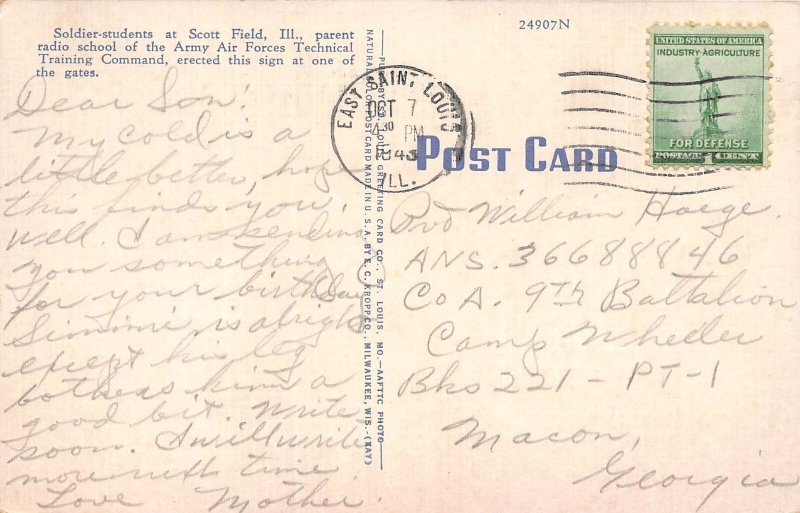 Soldier-students at Scott Field, Ill., parent
radio school of the Army Air Forces Technical
Training Command, erected this sign at one of
the gates.
24907N
UNITED STATES OF AMERICA
INDUSTRY-AGRICULTURE
FOR DEFENSE
POSTAGE 1 CENT
EAST SAINT LOUIS
OCT 7
4 30 PM
1943
ILL.
POST CARD
PUB. BY ST. LOUIS GREETING CARD CO., ST. LOUIS, MO.—AAFTTC PHOTO
NATURAL COLOR POST CARD MADE IN U. S. A. BY E. C. KROPP CO., MILWAUKEE, WIS.
Dear Son!
My cold is a
little better, hope
this finds you
well. I am sending
you something
for your birthday
Simmie is alright
except his leg
bothers him a
good bit. Write
soon. I will write
more next time
Love Mother.
Pvt William Haege.
ANS. 36688846
Co A. 9th Battalion
Camp Wheeler
Bks 221 - PT-1
Macon,
Georgia